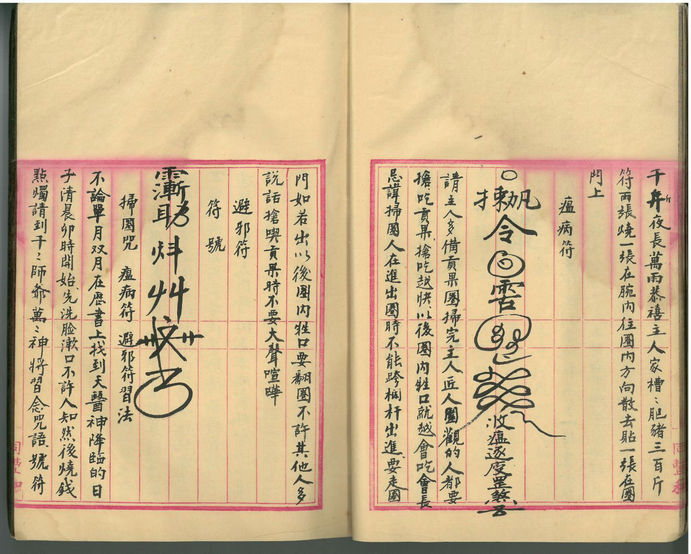 千夜長萬雨恭禧主人家槽〻肥猪三百斤
符兩張燒一張在腕内往圈内方向散去貼一張在圈
門上
瘟病符
令
請主人多備貢果圈掃完主人近人圍觀的人都要
搶吃貢果搶吃越快以後圈内牲口就越會吃會長
忌諱掃圈人在進出圈時不能跨杆出進要走圈
門如若出以後圈内牲口要翻圈不許其他人多
說話搶喫貢果時不要大聲喧嘩
避邪符
符號
掃圈咒 瘟病符 避邪符習法
不論單月双月在歷書上找到天醫神降臨的日
子清晨卯時開始先洗脸漱口不許人知然後燒錢
點燭請到千〻師爺萬〻神將習念咒語號符